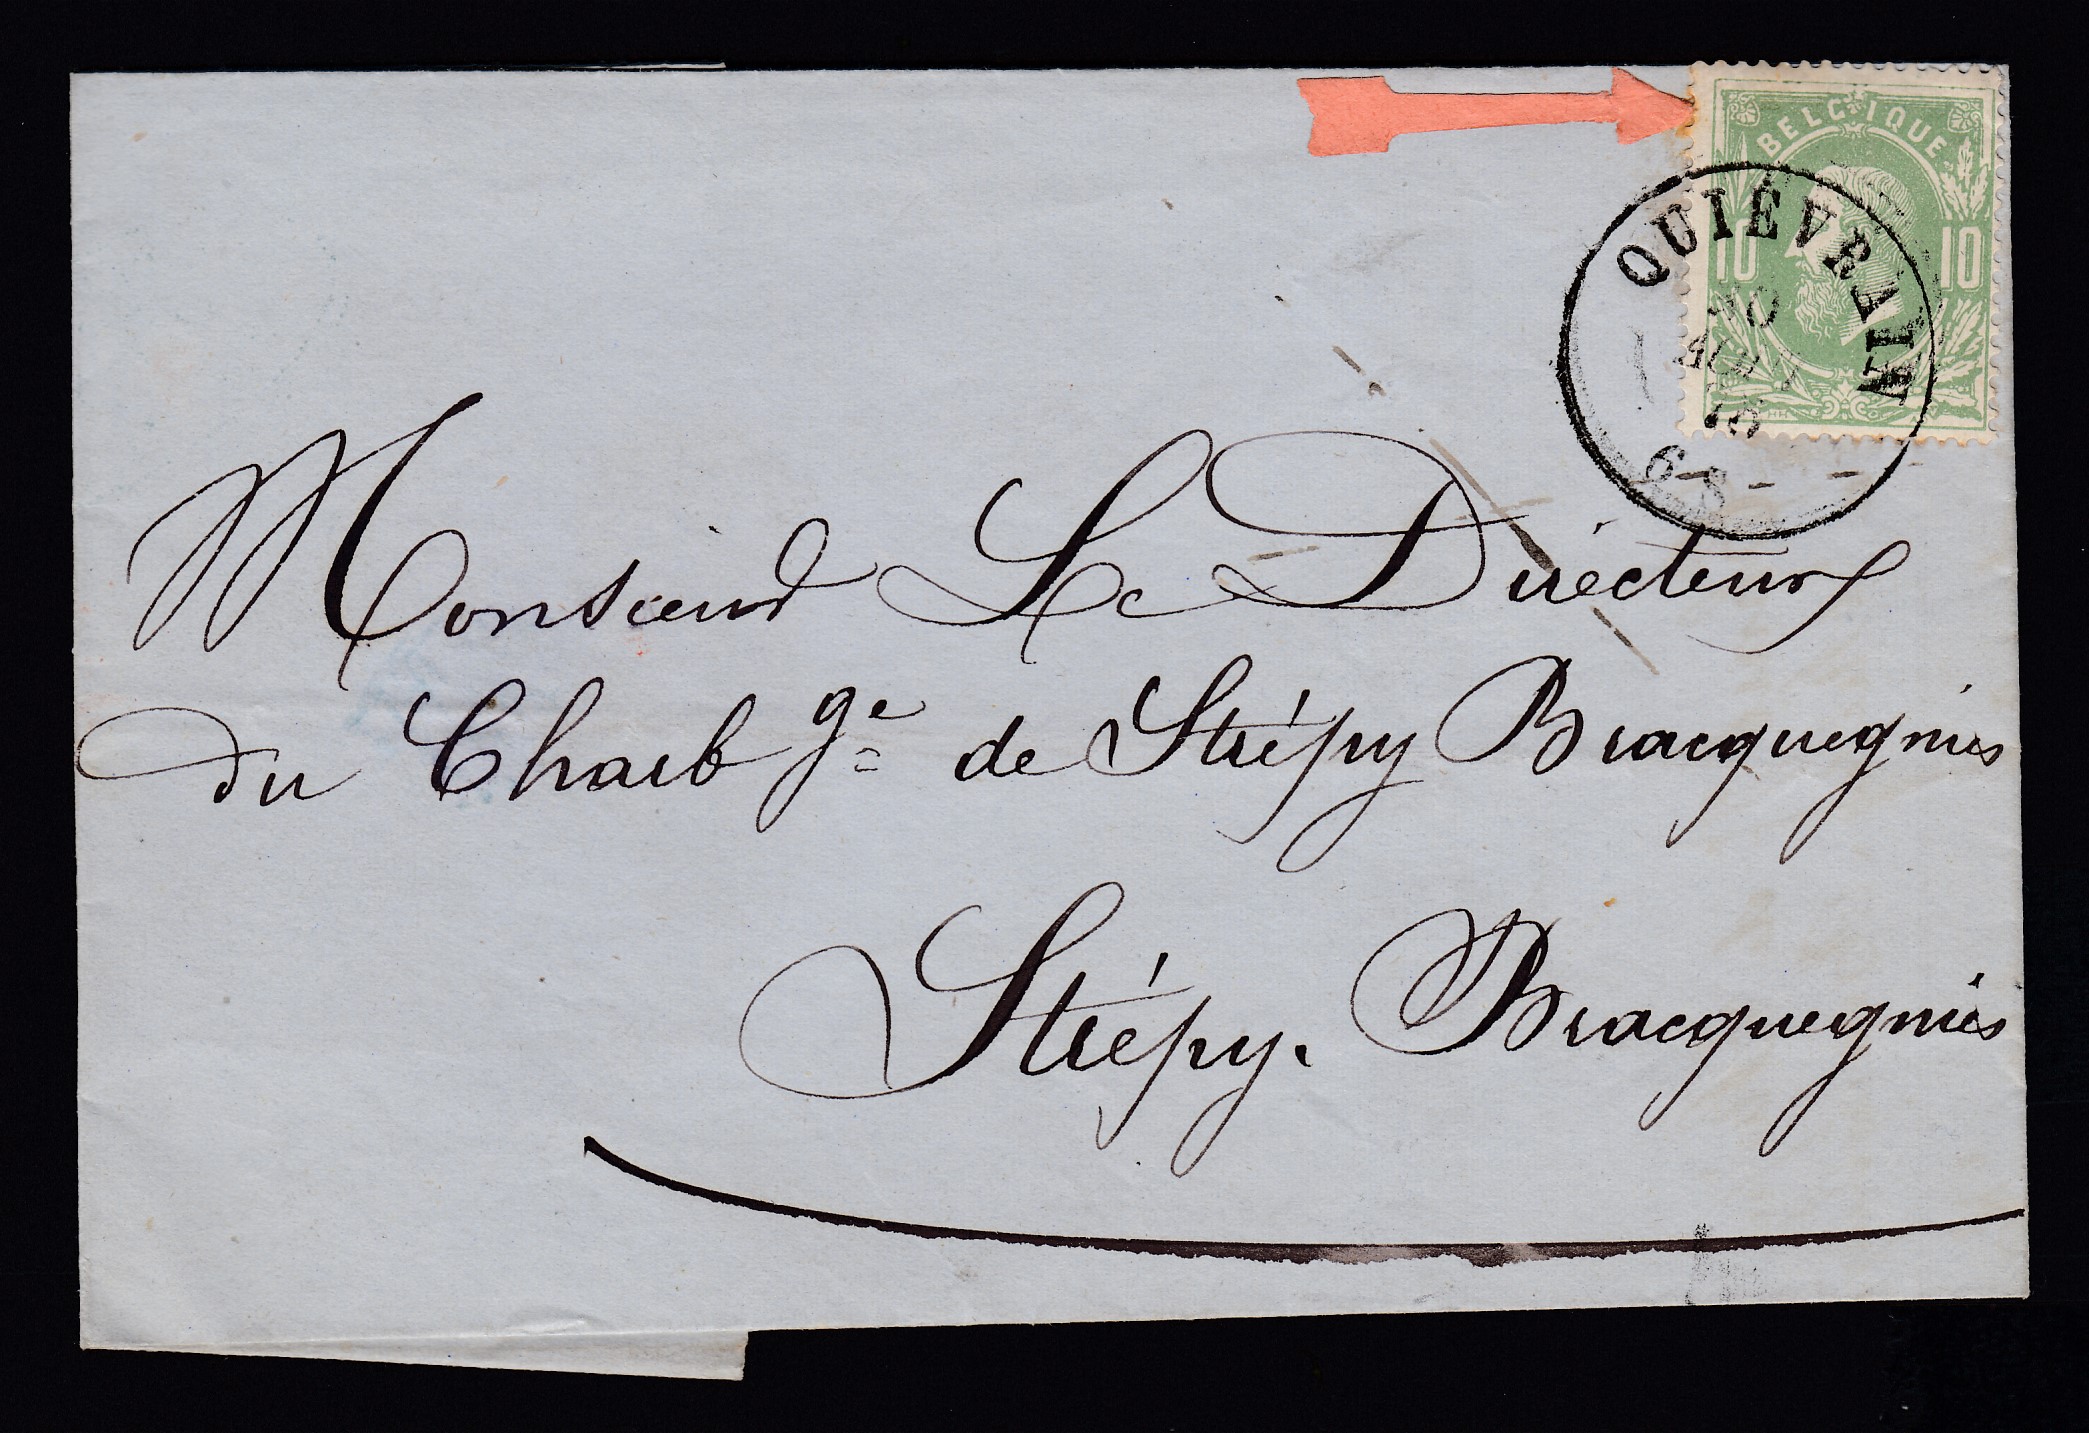 BELGIQUE
10 10
QUIÉVRAIN
AOUT
76
6-8
Monsieur Le Directeur
du Charbge de Strépy Bracquegnies
Strépy. Bracquegnies